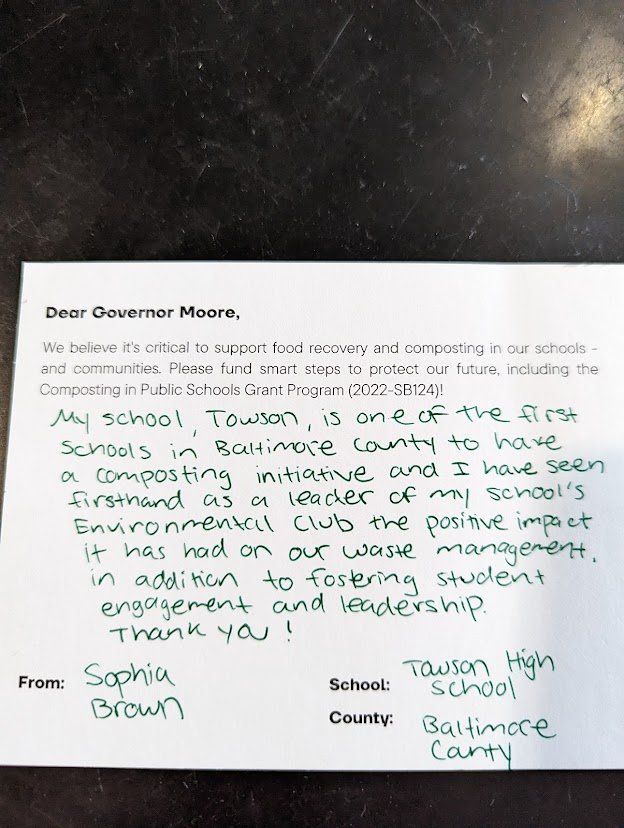 Dear Governor Moore,
We believe it's critical to support food recovery and composting in our schools -
and communities. Please fund smart steps to protect our future, including the
Composting in Public Schools Grant Program (2022-SB124)!
My school, Towson, is one of the first
schools in Baltimore County to have
a composting initiative and I have seen
firsthand as a leader of my school's
Environmental Club the positive impact
it has had on our waste management,
in addition to fostering student
engagement and leadership.
Thank you!
From: Sophia
Brown
School: Towson High
School
County: Baltimore
Canty